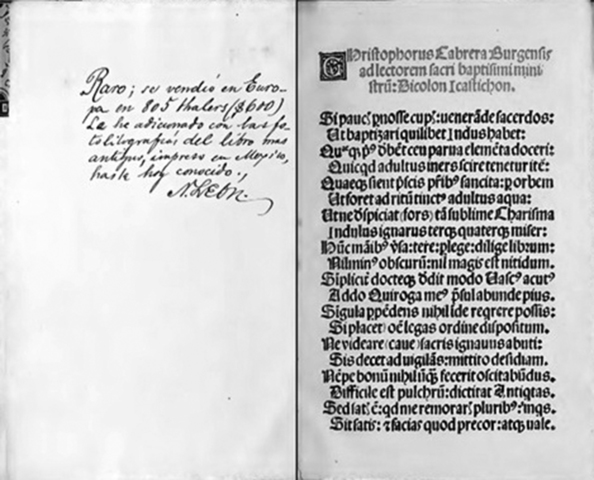 Raro; se vendió en Euro-
pa en 805 thalers ($600)
La he adicionado con las fo-
tolitografías del libro mas
antiguo, impreso en Mexico,
hasta hoy conocido.,
N. León.
Christophorus Cabrera Burgensis
ad lectorem sacri baptismi mini
strũ: Dicolon Icastichon.
Si paucꝭ pnosse cupꝭ: venerãde sacerdos:
Ut baptizari quilibet Indus habet:
Quęqꝫ pꝰ dbẽt ceu parua elemẽta doceri:
Quicqd adultus iners scire tenetur itẽ:
Quaeqꝫ sient pscis pribꝰ sancita: p orbem
Ut foret ad ritũ tinctꝰ adultus aqua:
Ut ne dspiciat (fors) tã sublime Charisma
Indulus ignarus terqꝫ quaterqꝫ miser:
Hũc mãibꝰ vsa: tere: plege: dilige librum:
Nil minꝰ obscurũ: nil magis est nitidum.
Siplicit docteqꝫ ddit modo Vascꝰ acutꝰ
Addo Quiroga meꝰ psul abunde pius.
Sigula ppẽdens nihil ide reqrere possis:
Si placet oẽ legas ordine dispositum.
Ne videare (caue) sacris ignauus abuti:
Sis decet aduigilãs: mittito desidiam.
Nẽpe bonũ nihil ũqꝫ fecerit oscitabũdus.
Difficile est pulchrũ: dictitat Antiqtas.
Sed satꝭ ẽ: qd me remorarꝭ pluribꝰ: inqs.
Sit satis: & facias quod precor: atqꝫ vale.